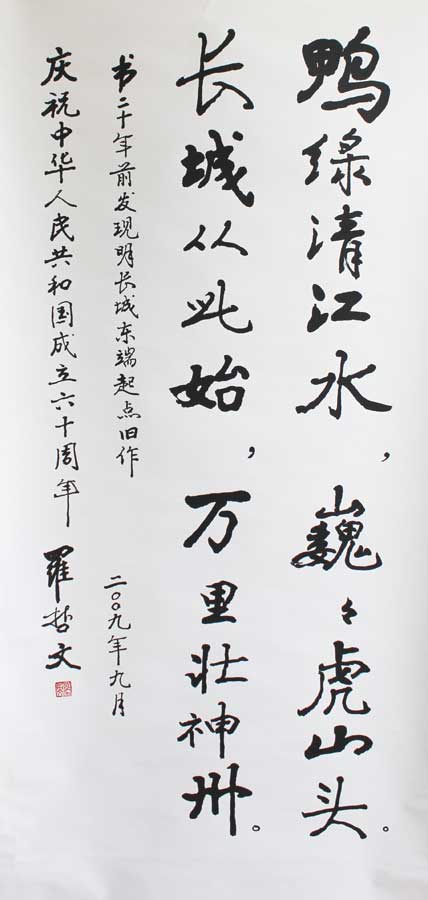 鸭绿清江水，巍々虎山头。
长城从此始，万里壮神州。
书二十年前发现明长城东端起点旧作
二〇〇九年九月
庆祝中华人民共和国成立六十周年
羅哲文